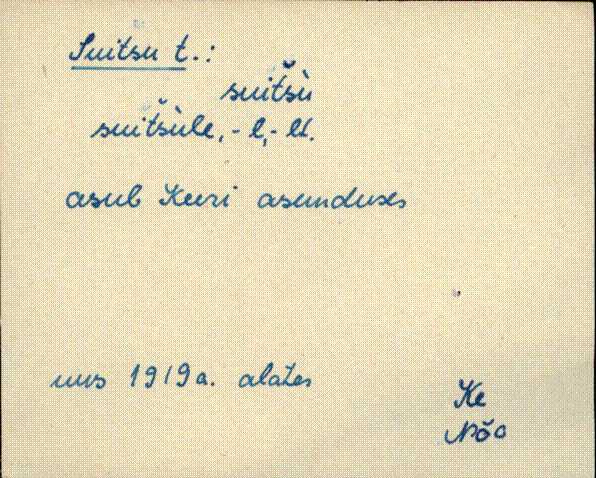 Suitsu t.:
suitšù
suitšùle, -l, -lt.
asub Keeri asunduses
uus 1919 a. alates
Ke
Nõo